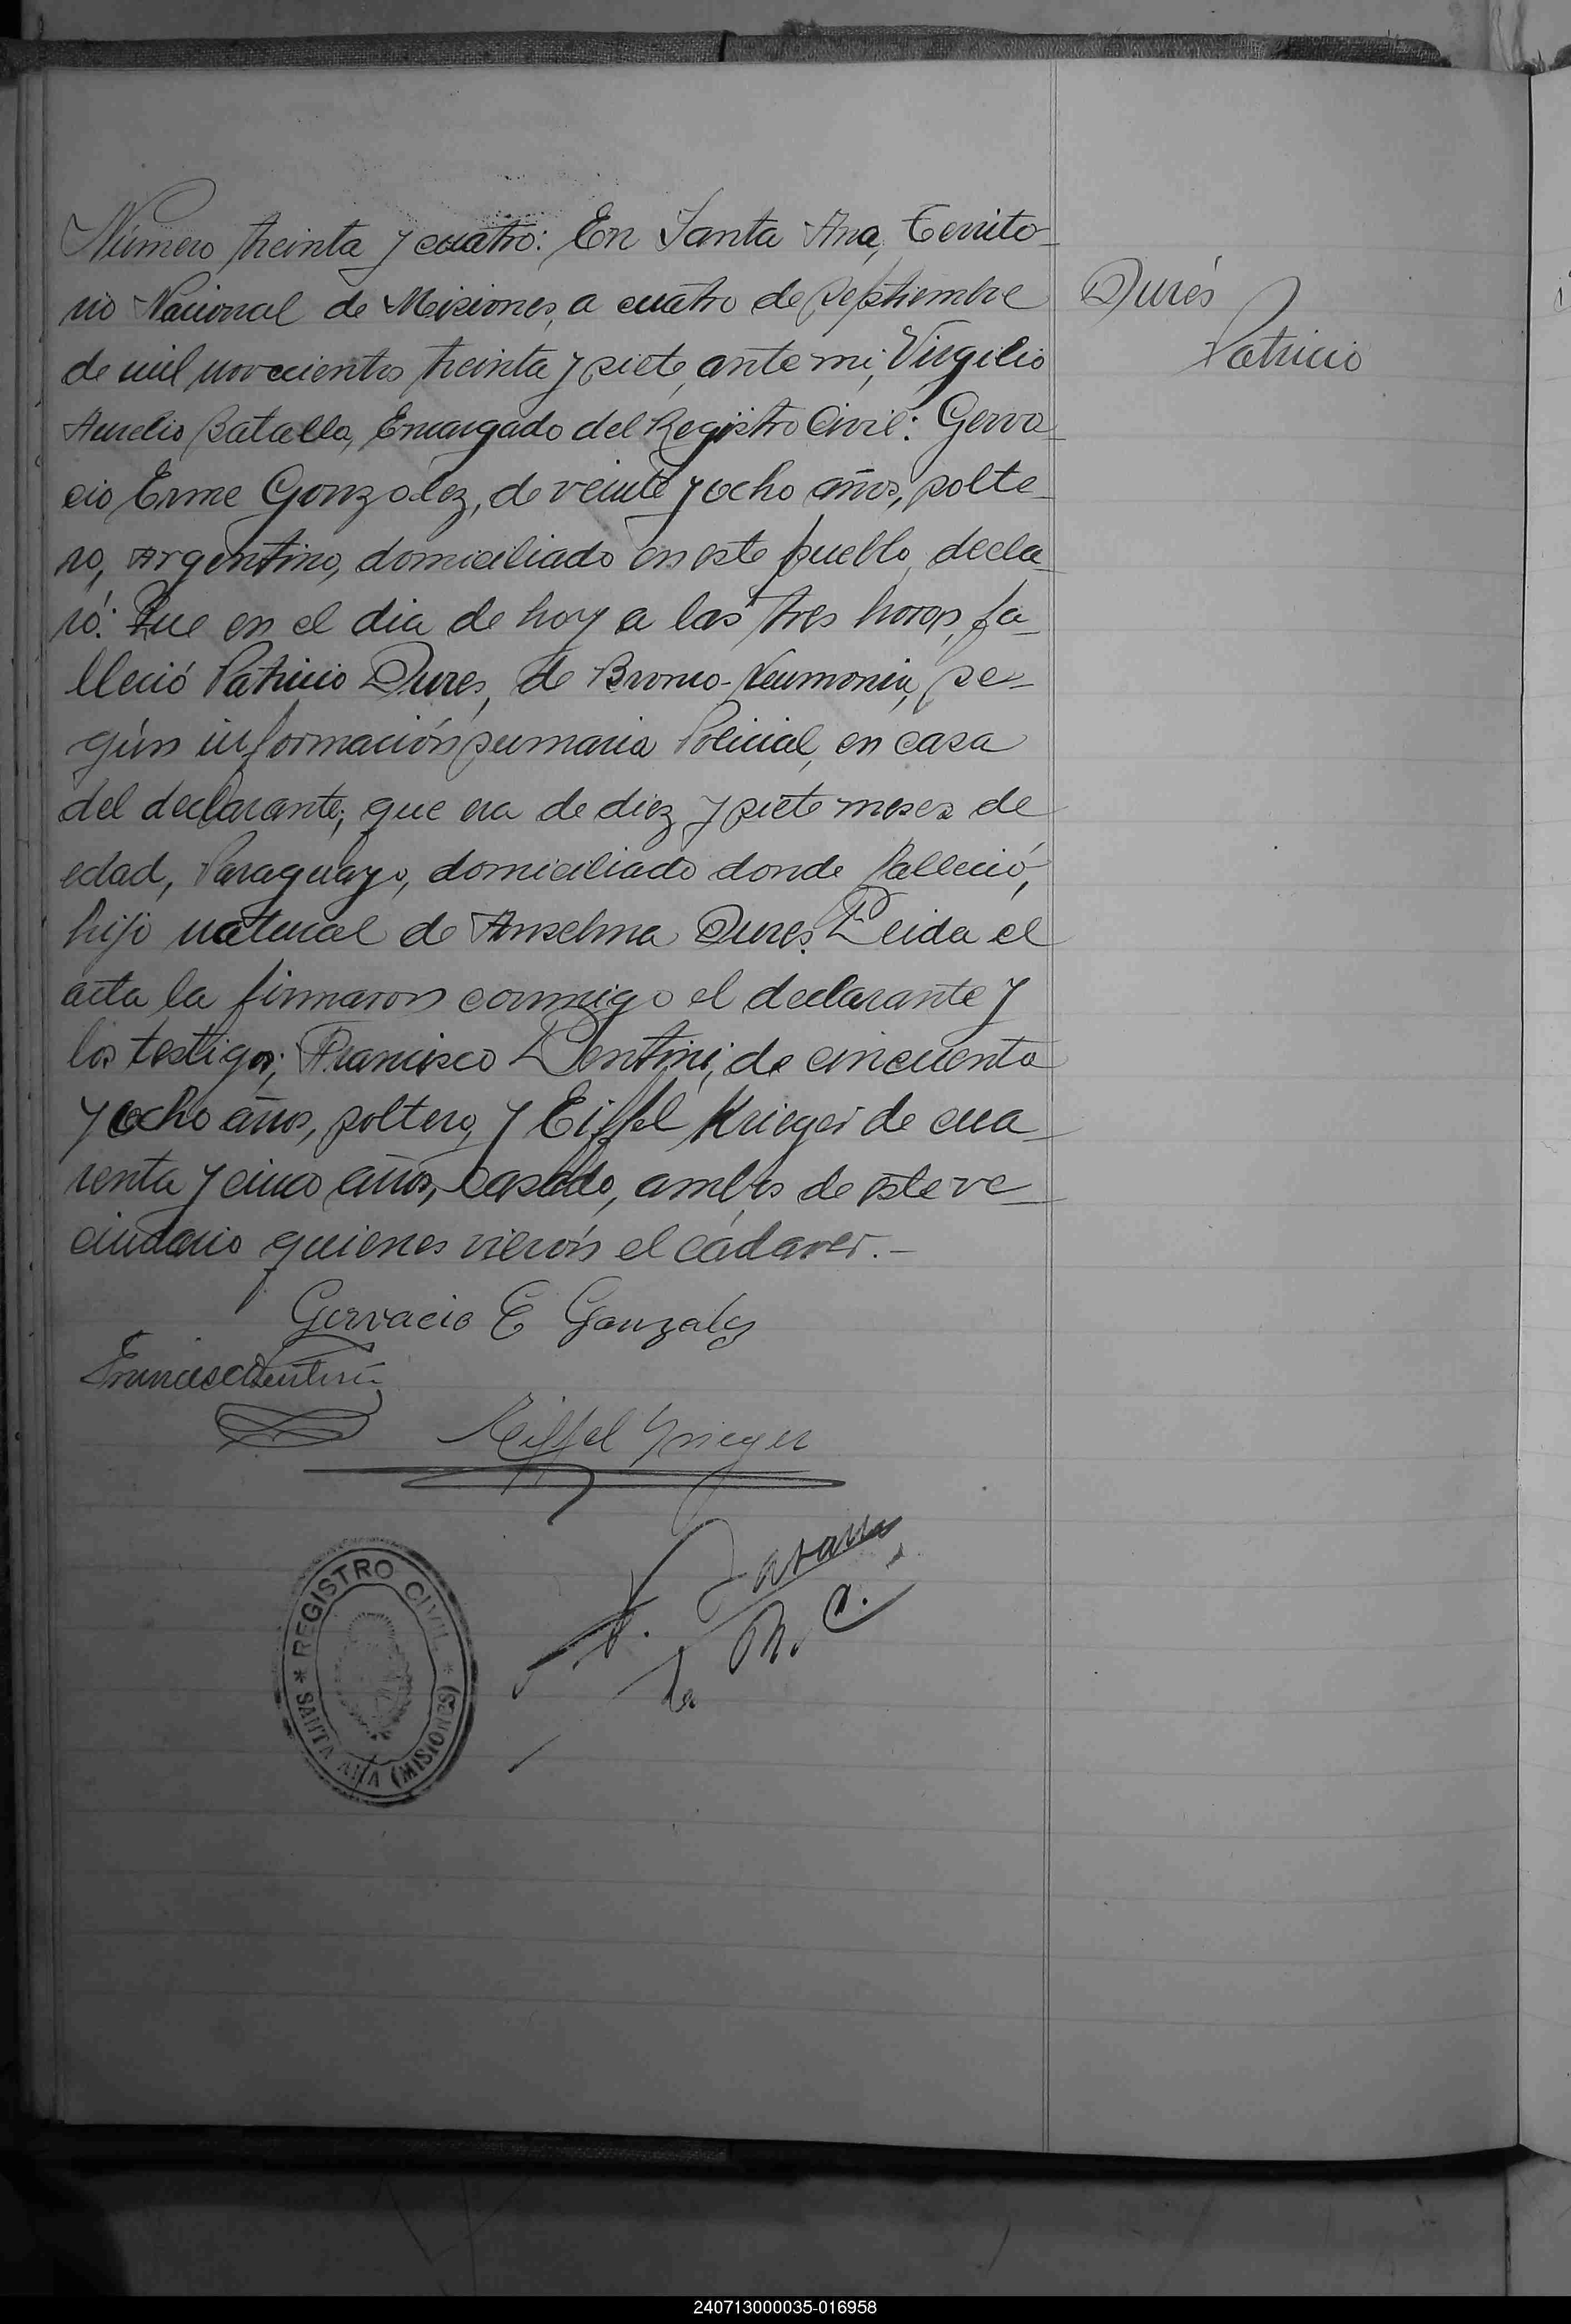 Número treinta y cuatro: En Santa Ana, Territo-
rio Nacional de Misiones, a cuatro de septiembre
de mil novecientos treinta y siete, ante mi, Virgilio
Aurelio Batalla, Encargado del Registro Civil: Gerva-
cio Erme Gonzalez, de veinte y ocho años, solte-
ro, Argentino, domiciliado en este pueblo, decla-
ró: Que en el dia de hoy a las tres horas, fa-
lleció Patricio Dures, de Bronco-Neumonia, se-
gún información sumaria Policial, en casa
del declarante; que era de diez y siete meses de
edad, Paraguayo, domiciliado donde falleció,
hijo natural de Anselma Dures. Leida el
acta la firmaron conmigo el declarante y
los testigos; Francisco Dentini, de cincuenta
y ocho años, soltero, y Eiffel Krieger de cua-
renta y cinco años, casado, ambos de este ve-
cindario quienes vierón el cádaver.-
Durés
Patricio
Gervacio E Gonzalez
Francisco Dentini
Eiffel Krieger
REGISTRO CIVIL
SANTA ANA (MISIONES)
240713000035-016958